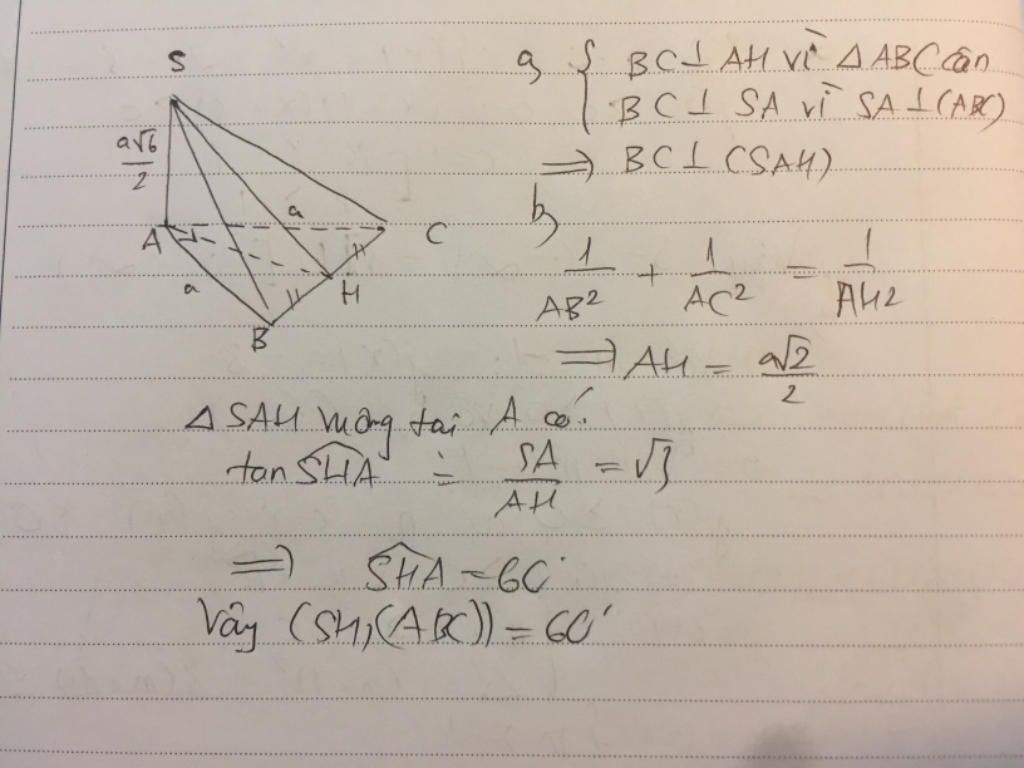 S
a√6/2
a
A
C
a
H
B
a, { BC ⊥ AH vì △ABC cân
BC ⊥ SA vì SA ⊥ (ABC)
⟹ BC ⊥ (SAH)
b,
1/AB² + 1/AC² = 1/AH2
⟹ AH = a√2/2
△SAH vuông tại A có:
tan SHA = SA/AH = √3
⟹ SHA = 60°
Vậy (SH,(ABC)) = 60°